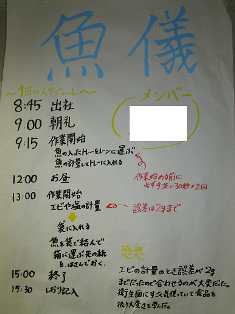 魚儀
～1日のスケジュール～
メンバー
8:45 出社
9:00 朝礼
9:15 作業開始
魚の入ったトレーをレーンに運ぶ
魚の計量してトレーに入れる
作業の前に
必ず手洗い30秒×2回
12:00 お昼
13:00 作業開始
エビや塩の計量
誤差は2gまで
袋に入れる
魚を袋で結んで
箱に運ぶ
15:00 終了
15:30 しおり記入
感想
エビの計量のとき誤差が2g
までだったので合わせるのが大変だった。
衛生面にすごく気を使っていて食品を
扱う大変さを学んだ。